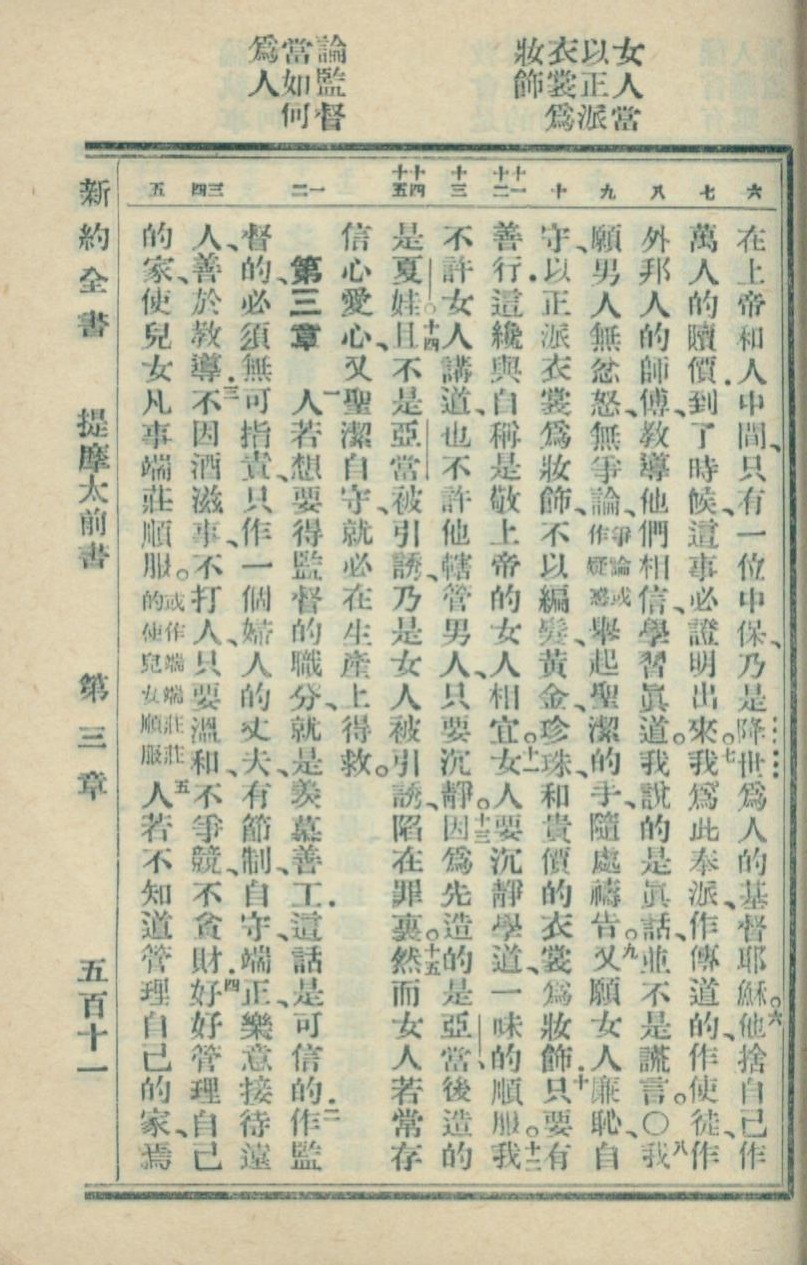 女人當
以正派
衣裳爲
妝飾
論監督
當如何
爲人
六
七
八
九
十
十一
十二
十三
十四
十五
一
二
三
四
五
在上帝和人中間、只有一位中保、乃是降世爲人的基督耶穌。六他捨自己作
萬人的贖價．到了時候、這事必證明出來。七我爲此奉派、作傳道的、作使徒、作
外邦人的師傅、教導他們相信、學習眞道。我說的是眞話、並不是謊言。〇八我
願男人無忿怒、無爭論、爭論或作疑惑舉起聖潔的手、隨處禱告。九又願女人廉恥、自
守、以正派衣裳爲妝飾、不以編髮、黃金、珍珠、和貴價的衣裳爲妝飾．十只要有
善行．這纔與自稱是敬上帝的女人相宜。十一女人要沉靜學道、一味的順服。十二我
不許女人講道、也不許他轄管男人、只要沉靜。十三因爲先造的是亞當、後造的
是夏娃。十四且不是亞當被引誘、乃是女人被引誘、陷在罪裏。十五然而女人若常存
信心愛心、又聖潔自守、就必在生產上得救。
第三章　一人若想要得監督的職分、就是羨慕善工．這話是可信的．二作監
督的、必須無可指責、只作一個婦人的丈夫、有節制、自守、端正、樂意接待遠
人、善於教導．三不因酒滋事、不打人、只要溫和、不爭競、不貪財．四好好管理自己
的家、使兒女凡事端莊順服。或作端端莊莊的使兒女順服五人若不知道管理自己的家、焉
新約全書　提摩太前書　第三章　五百十一